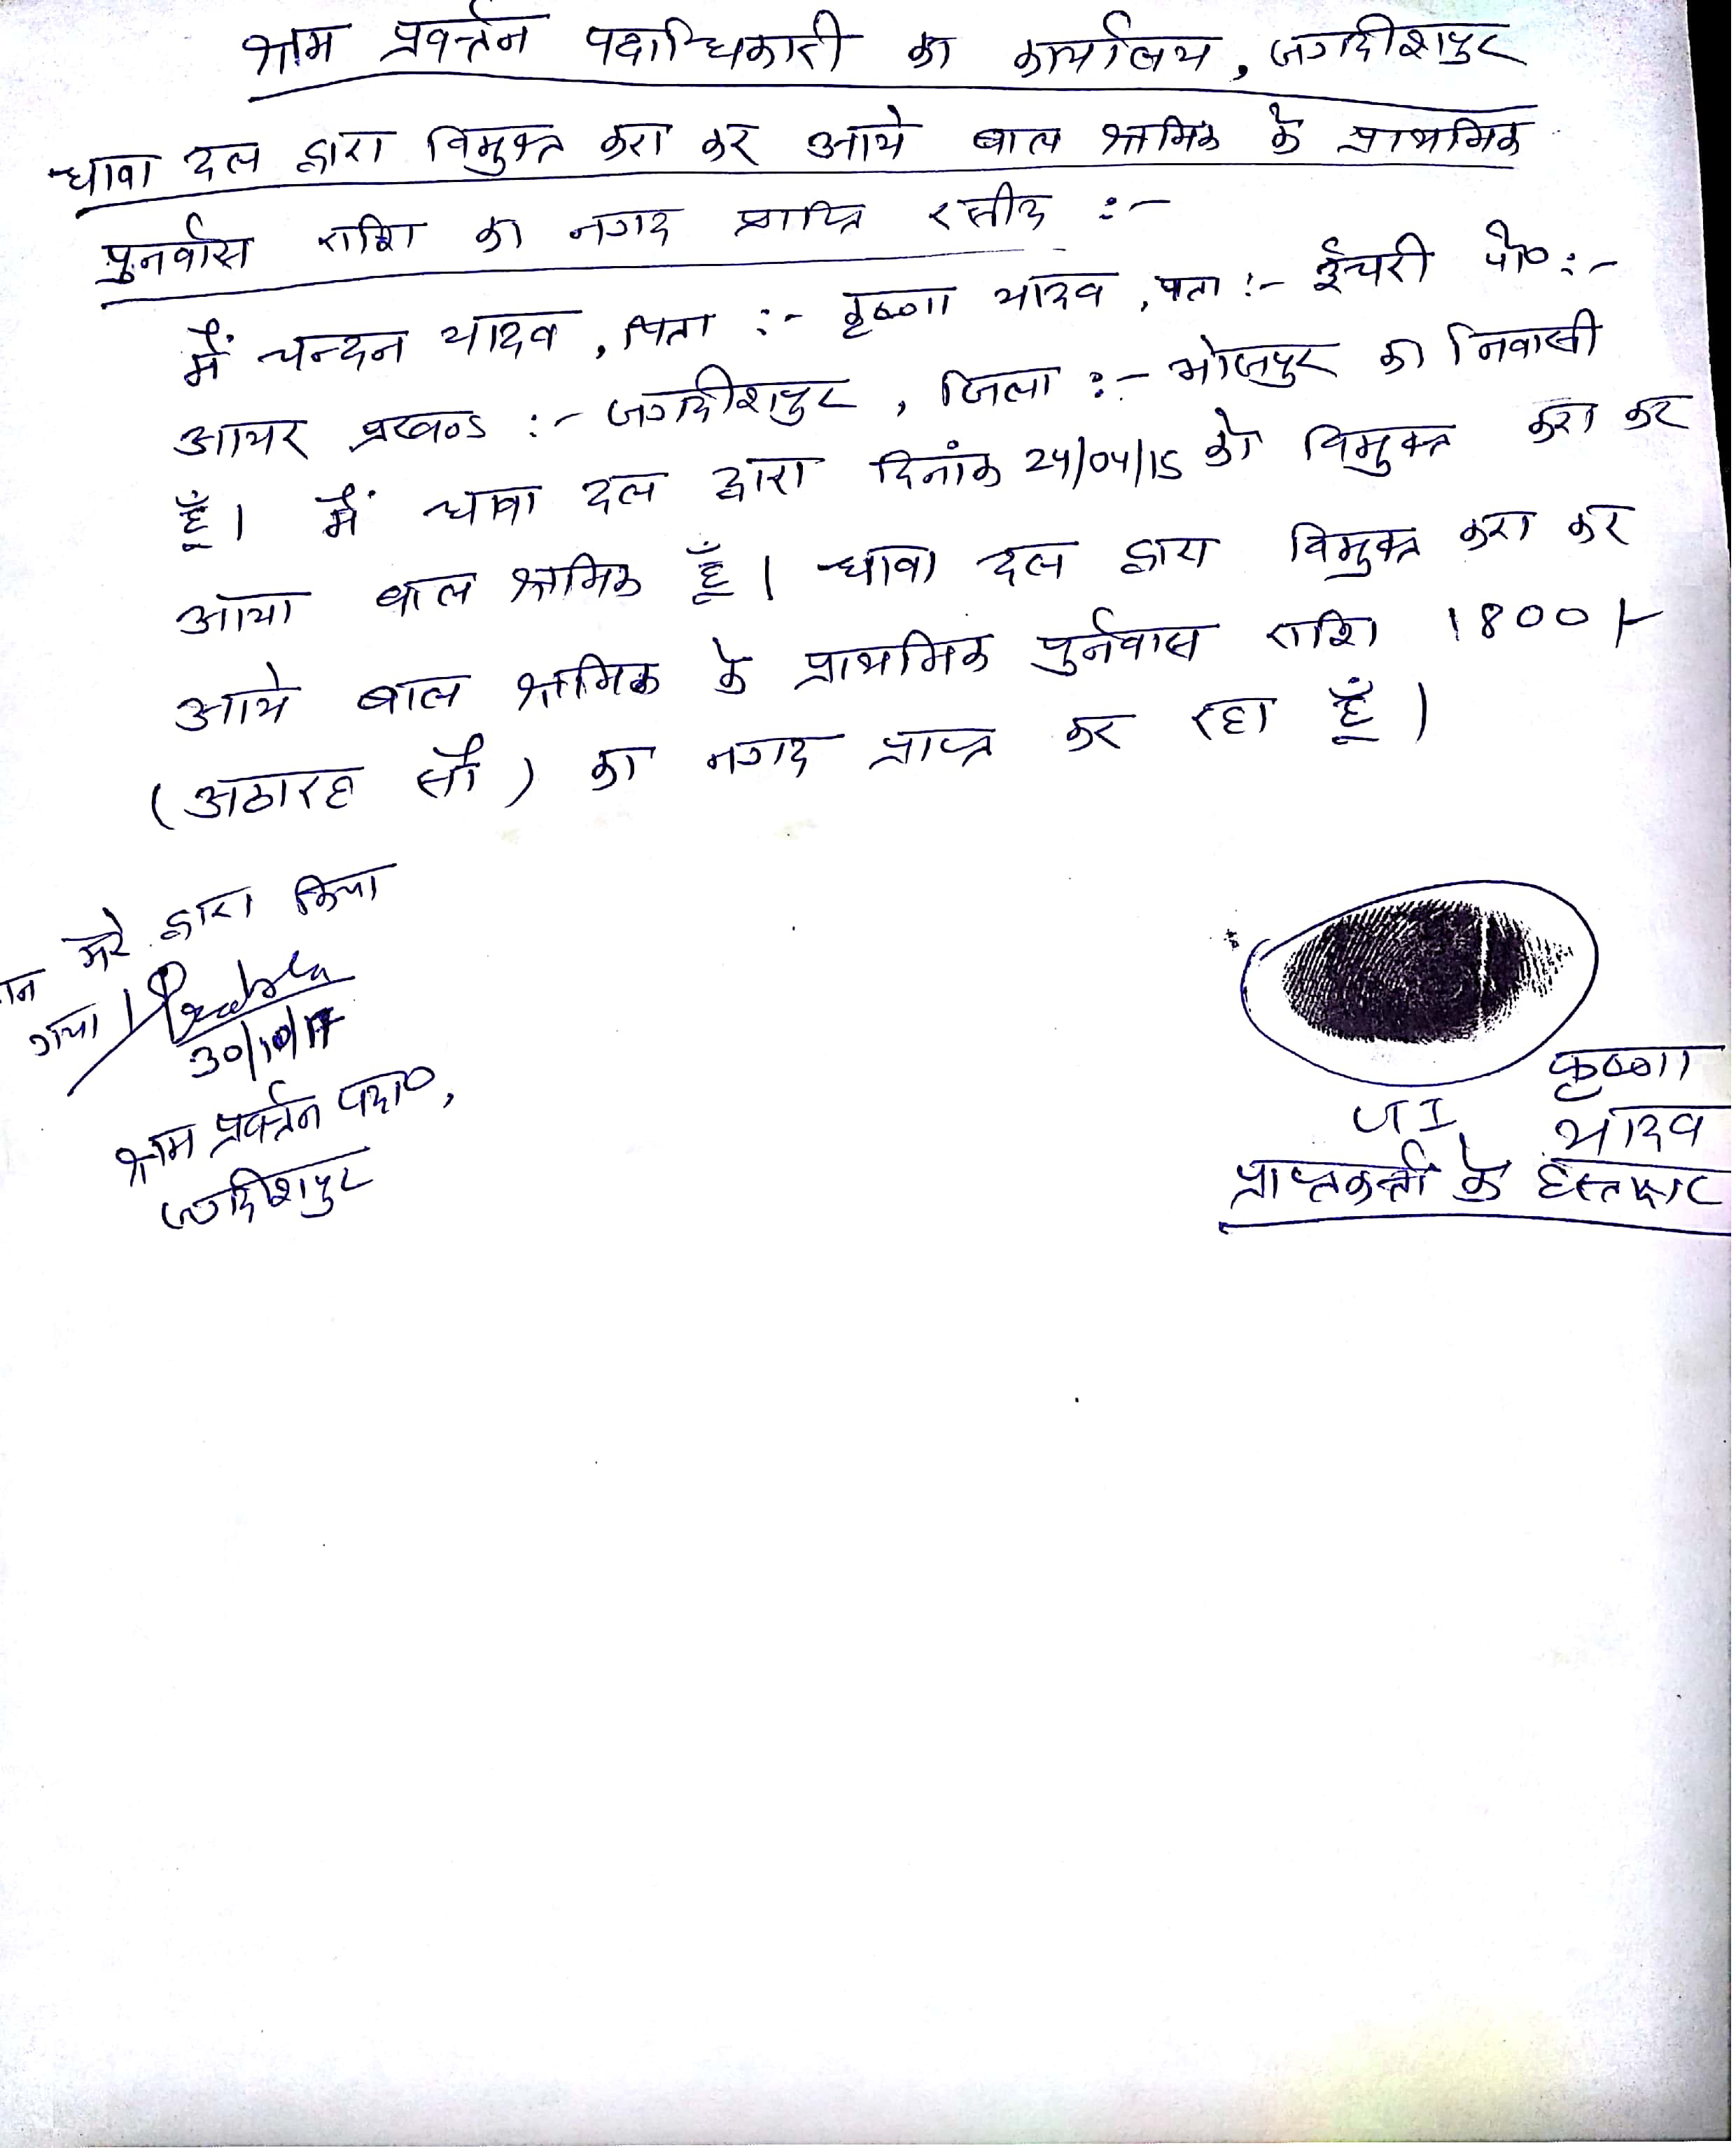 श्रम प्रवर्त्तन पदाधिकारी का कार्यालय, जगदीशपुर
धावा दल द्वारा विमुक्त करा कर आये बाल श्रमिक के प्राथमिक
पुनर्वास राशि का नगद प्राप्ति रसीद :-
मैं चन्दन यादव, पिता :- कृष्णा यादव, पता :- ईचरी पो० :-
आयर प्रखण्ड :- जगदीशपुर, जिला :- भोजपुर का निवासी
हूँ। मैं धावा दल द्वारा दिनांक 24/04/15 को विमुक्त करा कर
आया बाल श्रमिक हूँ। धावा दल द्वारा विमुक्त करा कर
आये बाल श्रमिक के प्राथमिक पुर्नवास राशि 1800/-
(अठारह सौ) का नगद प्राप्त कर रहा हूँ।
मेरे द्वारा किया
गया।
30/10/17
श्रम प्रवर्त्तन पदा०,
जगदीशपुर
कृष्णा
यादव
प्राप्तकर्त्ता के हस्ताक्षर